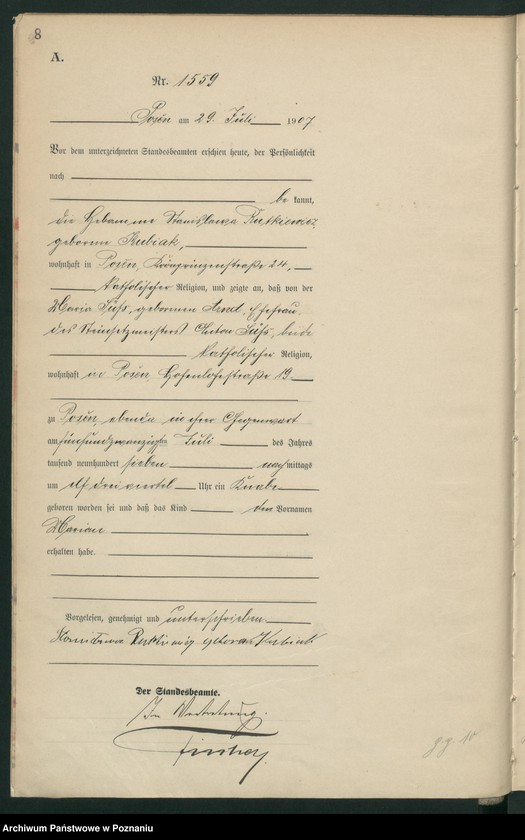 8
A.
Nr. 1559
Posen am 29. Juli 1907
Vor dem unterzeichneten Standesbeamten erschien heute, der Persönlichkeit
nach
be kannt,
die Hebamme Stanislawa Rutkiewicz,
geborene Kubiak,
wohnhaft in Posen, Kronprinzenstraße 24,
katholischer Religion, und zeigte an, daß von der
Maria Süß, geborenen Arnd, Ehefrau
des Steinsetzmeisters Anton Süß, beide
katholischer Religion,
wohnhaft in Posen, Hohenlohestraße 19
zu Posen, ebenda in ihrer Gegenwart
am fünfundzwanzigsten Juli des Jahres
tausend neunhundert sieben nachmittags
um elf dreiviertel Uhr ein Knabe
geboren worden sei und daß das Kind den Vornamen
Marian
erhalten habe.
Vorgelesen, genehmigt und unterschrieben.
Stanislawa Rutkiewicz geborene Kubiak
Der Standesbeamte.
In Vertretung.
Archiwum Państwowe w Poznaniu